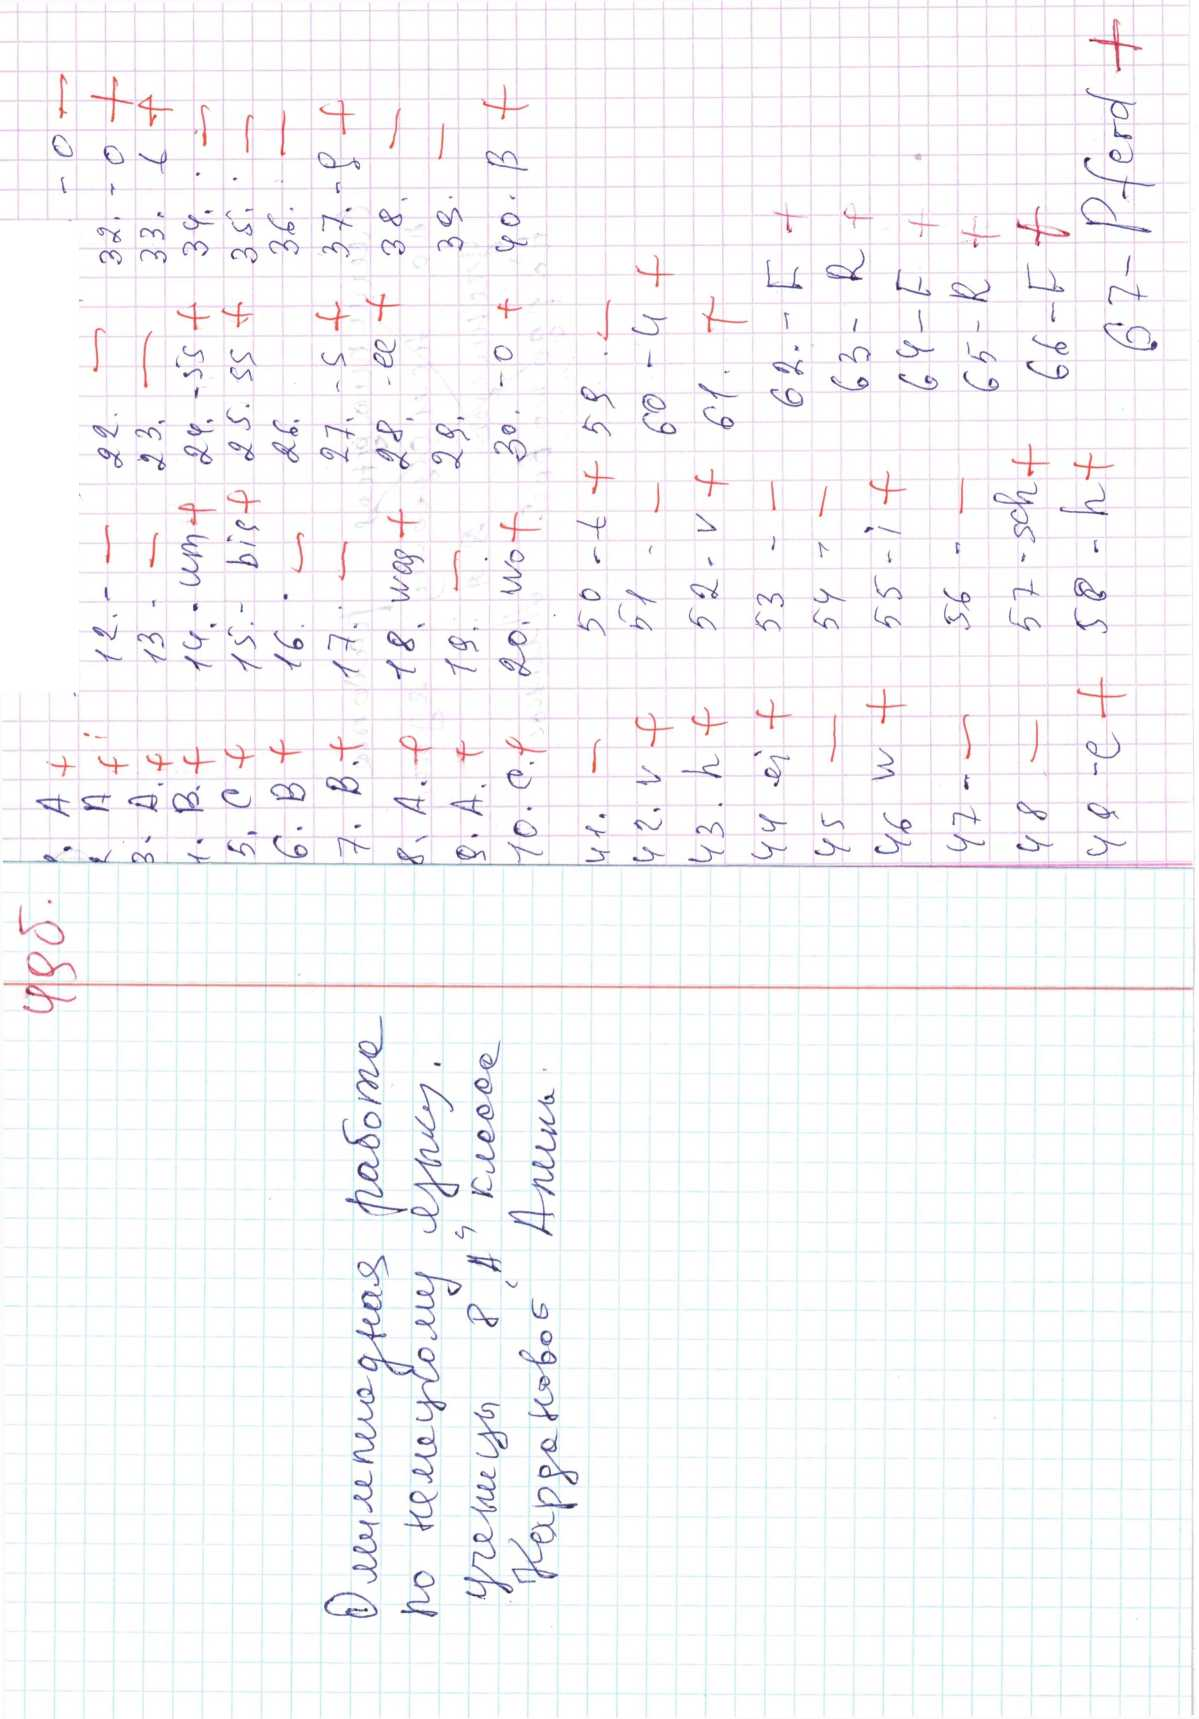 49б.
Олимпиадная работа
по немецкому языку.
ученицы 8 "А" класса
Кардановой Алины.
A +
2 A +
3. D. +
4. B. +
5. C +
6. B +
7. B. +
8. A. +
9. A. +
10. C. +
12. - –
13. –
14. - um +
15. - bis +
16. –
17. –
18. was +
19. –
20. wo +
22. –
23. –
24. - ss +
25. ss +
26.
27. - s +
28. - ee +
29.
30. - o +
- o –
32. - o +
33. +
34. –
35. –
36. –
37. - g +
38. –
39. –
40. B +
41. –
42. v +
43. h +
44 ei +
45 –
46 w +
47 - –
48 –
49 - e +
50 - t +
51 - –
52 - v +
53 - –
54 - –
55 - i +
56 - –
57 - sch +
58 - h +
59 –
60 - 4 +
61. +
62. - E +
63 - R +
64 - E +
65 - R +
66 - E +
67 - Pferd +